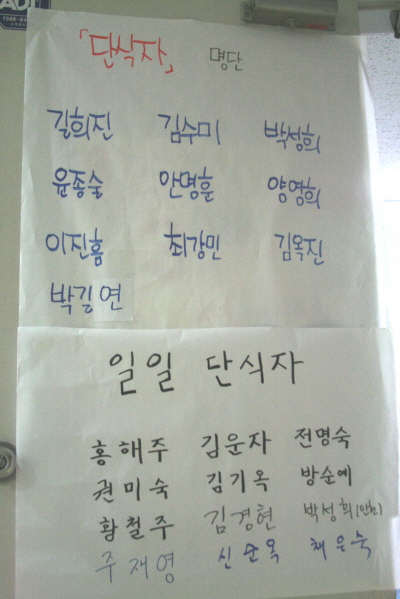 「단식자」 명단
길희진 김수미 박성희
윤종술 안명훈 양영희
이진홈 최강민 김옥진
박길연
일일 단식자
홍해주 김운자 전명숙
권미숙 김기옥 방순예
황철주 김경현 박성희(인천)
주재영 신순옥 채은숙